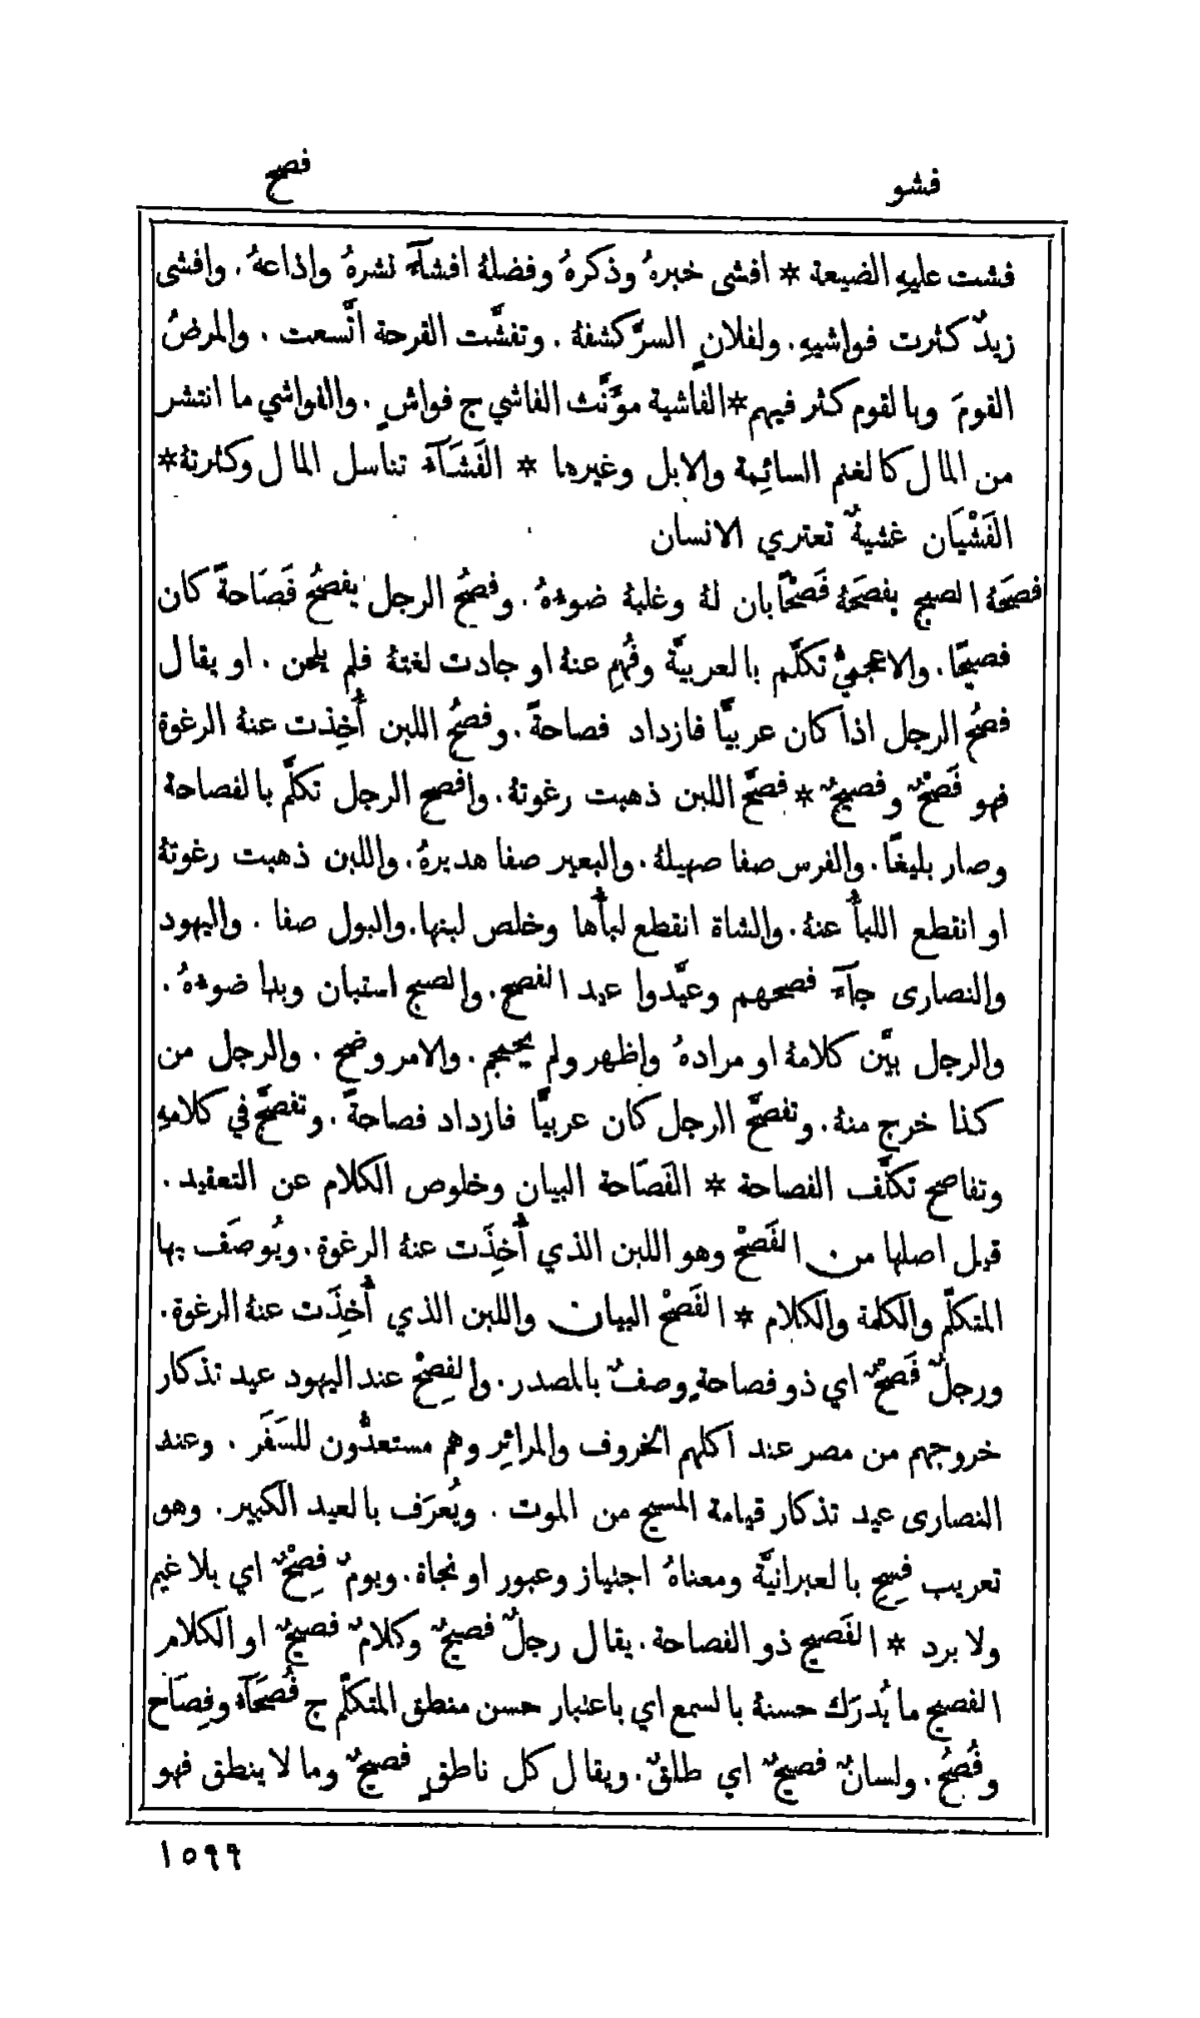 فشو
فصح
فشت عليهِ الضيعة * افشى خبرهُ وذكرهُ وفضلهُ افشآءً نشرهُ واذاعهُ. وافشى
زيدٌ كثرت فواشيهِ. ولفلانٍ السرَّ كشفهُ. وتفشَّت القرحة اتَّسعت. والمرضُ
القومَ وبالقوم كثر فيهم * الفاشية مؤَنَّث الفاشي ج فواشٍ. والفواشي ما انتشر
من المال كالغنم السائِمة والابل وغيرها * الفَشَآء تناسل المال وكثرتهُ *
الفَشْيَان غشيةٌ تعتري الانسان
فصحَهُ الصبح يفصَحهُ فَصْحًا بان لهُ وغلبهُ ضوءهُ. وفصُح الرجل يفصُح فَصَاحةً كان
فصيحًا. والاعجميُّ تكلَّم بالعربيَّة وفُهِم عنهُ او جادت لغتهُ فلم يلحن. او يقال
فصُح الرجل اذا كان عربيًّا فازداد فصاحةً. وفصُح اللبن أُخِذت عنهُ الرغوة
فهو فَصْحٌ وفصيحٌ * فصَّح اللبن ذهبت رغوتهُ. وافصح الرجل تكلَّم بالفصاحة
وصار بليغًا. والفرس صفا صهيلهُ. والبعير صفا هديرهُ. واللبن ذهبت رغوتهُ
او انقطع اللبأُ عنهُ. والشاة انقطع لبأُها وخلص لبنها. والبول صفا. واليهود
والنصارى جآءَ فصحهم وعيَّدوا عيد الفصح. والصبح استبان وبدا ضوءهُ.
والرجل بيَّن كلامهُ او مرادهُ واظهر ولم يجمجم. والامر وضح. والرجل من
كذا خرج منهُ. وتفصَّح الرجل كان عربيًّا فازداد فصاحةً. وتفصَّح في كلامهِ
وتفاصح تكلَّف الفصاحة * الفَصَاحة البيان وخلوص الكلام عن التعقيد.
قيل اصلها من الفَصْح وهو اللبن الذي أُخِذَت عنهُ الرغوة. ويُوصَف بها
المتكلّم والكلمة والكلام * الفَصْح البيان واللبن الذي أُخِذَت عنهُ الرغوة.
ورجلٌ فَصْحٌ اي ذو فصاحةٍ وصفٌ بالمصدر. والفِصْح عند اليهود عيد تذكار
خروجهم من مصر عند اكلهم الخروف والمرائِر وهم مستعدُّون للسَفَر. وعند
النصارى عيد تذكار قيامة المسيح من الموت. ويُعرَف بالعيد الكبير. وهو
تعريب فِسِح بالعبرانيَّة ومعناهُ اجتياز وعبور او نجاة. ويومٌ فِصْحٌ اي بلا غيم
ولا برد * الفَصيح ذو الفصاحة. يقال رجلٌ فصيحٌ وكلامٌ فصيحٌ او الكلام
الفصيح ما يُدرَك حسنهُ بالسمع اي باعتبار حسن منطق المتكلّم ج فُصَحَآء وفِصَاح
وفُصُح. ولسانٌ فصيحٌ اي طلقٌ. ويقال كل ناطقٍ فصيحٌ وما لا ينطق فهو
١٥٩٩